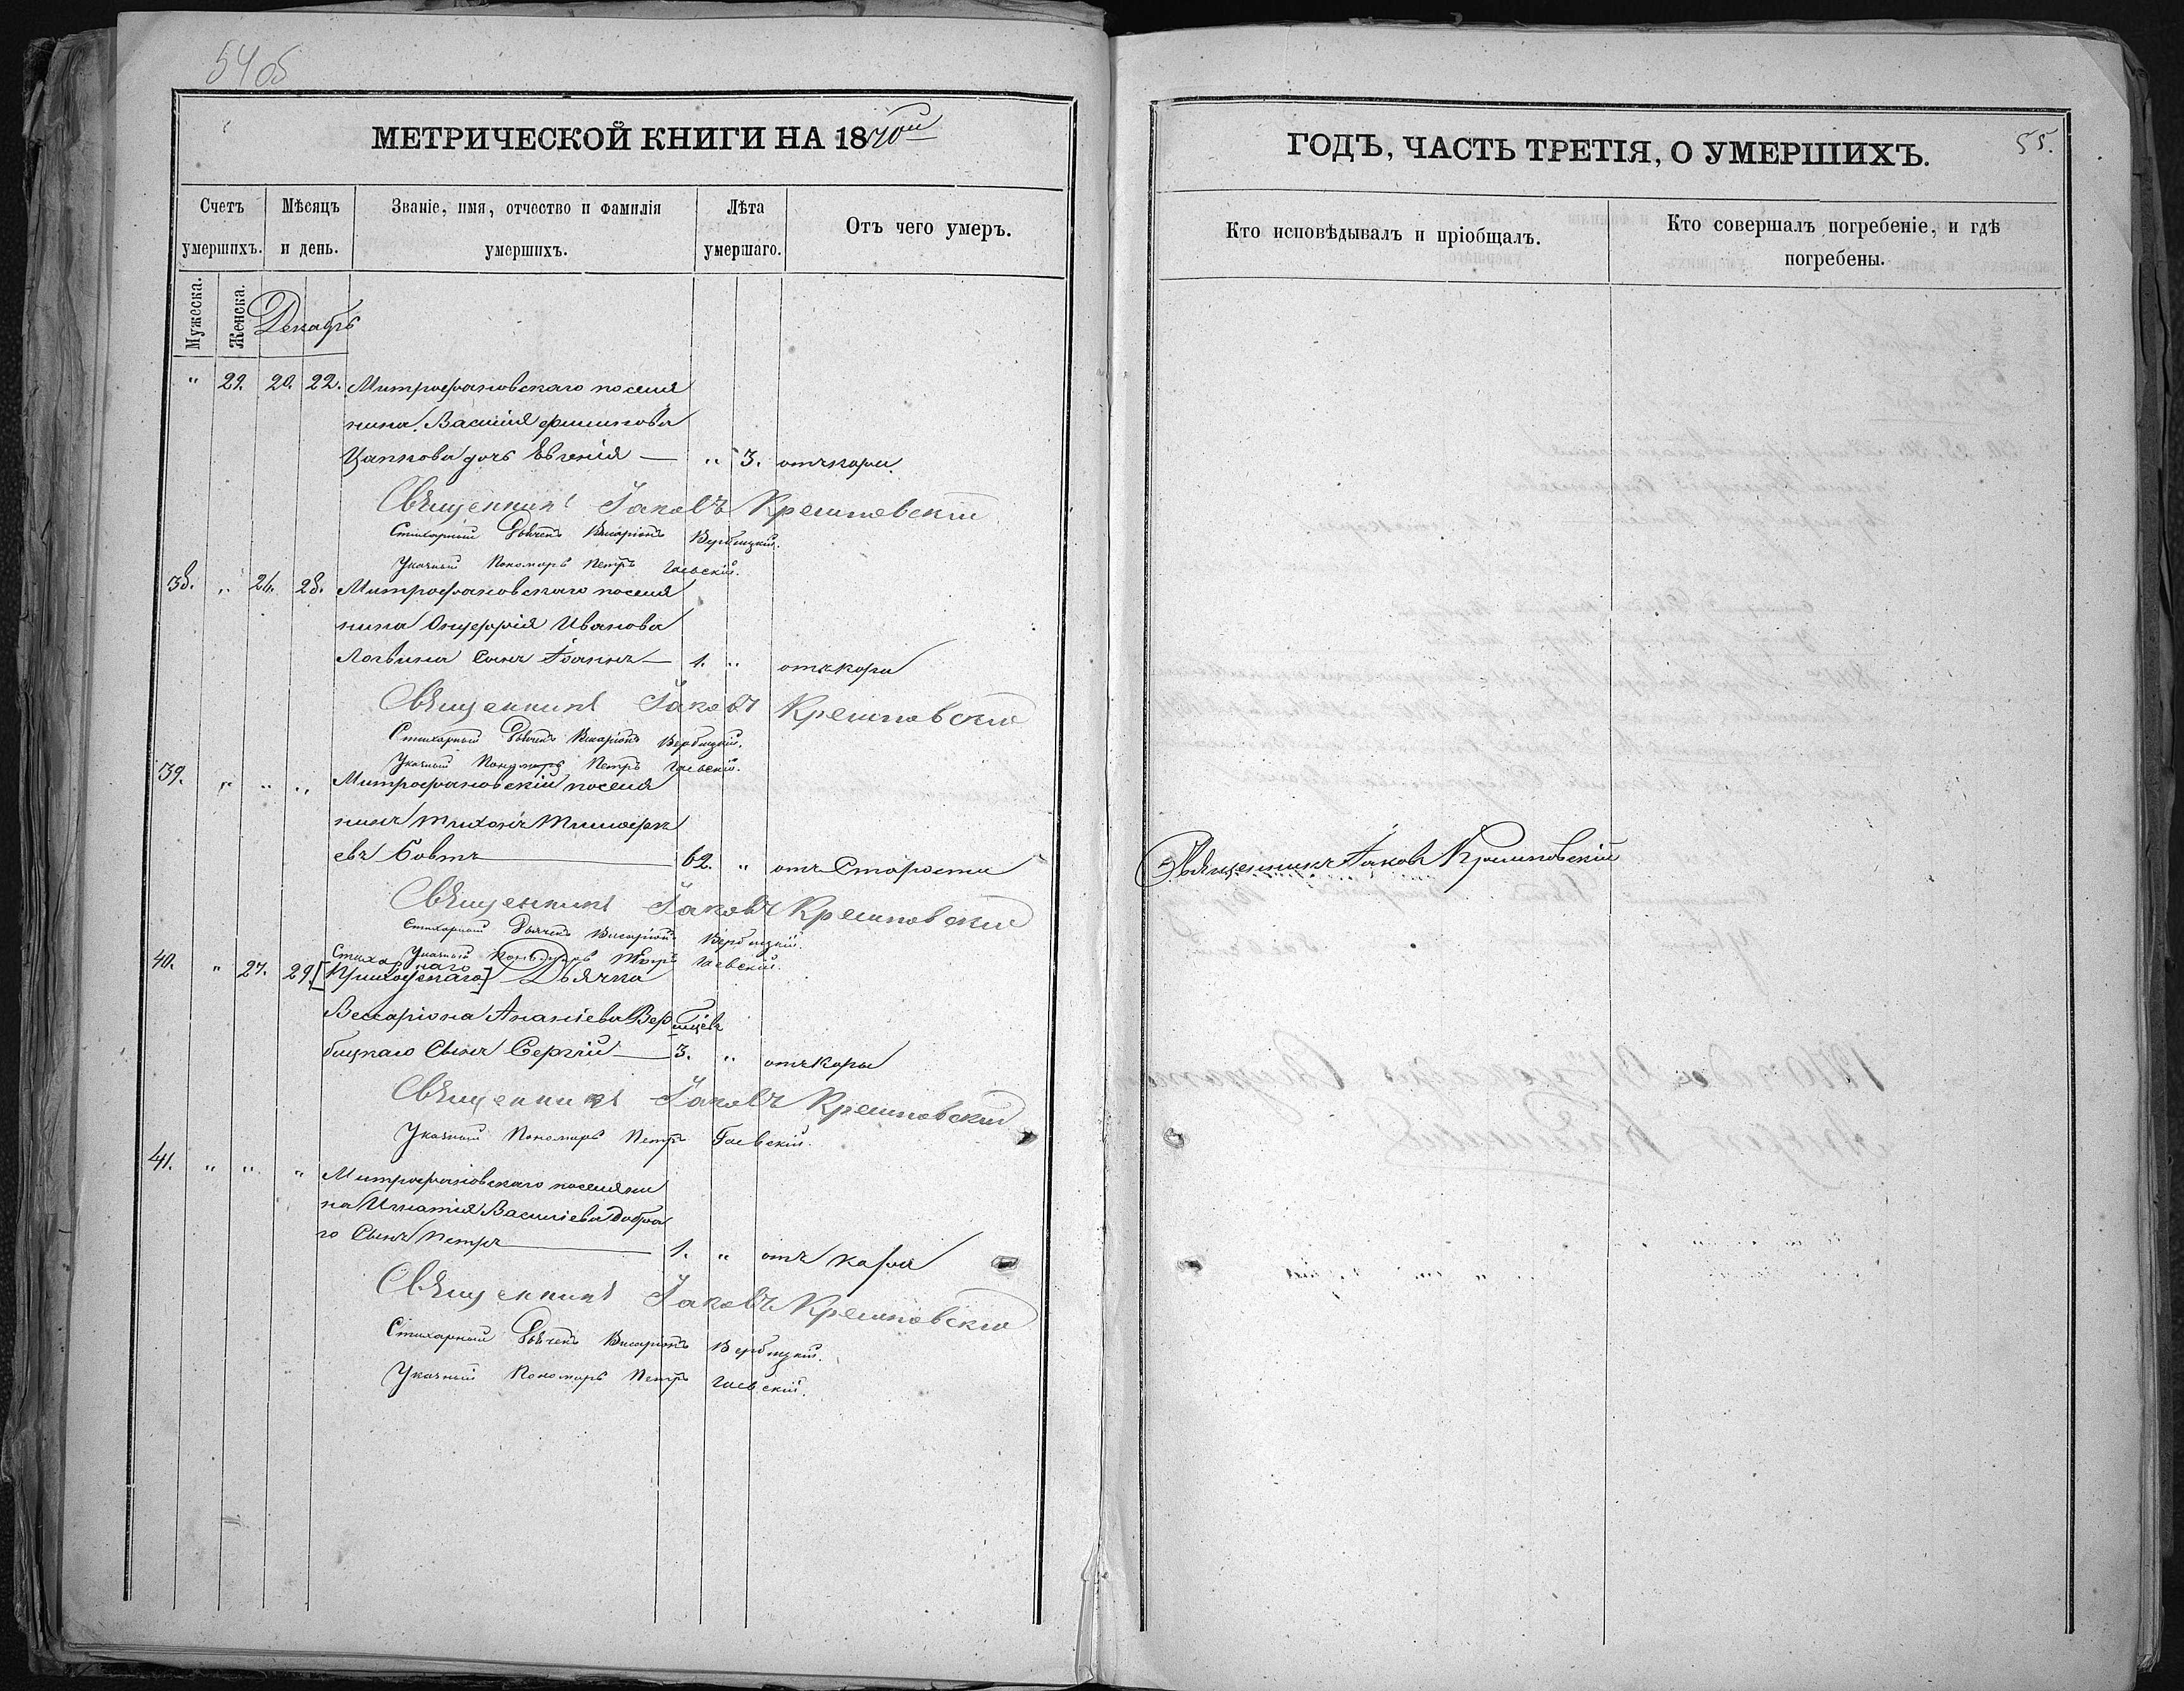 54 об
МЕТРИЧЕСКОЙ КНИГИ НА 1870ый
Счетъ умершихъ.
Мѣсяцъ и день.
Званіе, имя, отчество и фамилія умершихъ.
Лѣта умершаго.
Отъ чего умеръ.
Мужеска.
Женска.
Декабрь
" 29. 20. 22. Митрофановскаго поселя
нина Василія Филипова
Цапкова дочь Евгенія — " 3. отъ кори.
Священникъ Іаковъ Крешновскій
Стихарный Дьячекъ Висаріонъ Вербицкій.
Указный Пономарь Петръ Гаевскій.
38. " 26. 28. Митрофановскаго поселя
нина Онуфрія Иванова
Логвина Сынъ Іоаннъ — 1. " отъ кори
Священникъ Іаковъ Крешновскій
Стихарный Дьячекъ Висаріонъ Вербицкій.
Указный Пономарь Петръ Гаевскій.
39. " " " Митрофановскій поселя
нинъ Тихонъ Тимофе
евъ Бовтъ — 62. " отъ Старости
Священникъ Іаковъ Крешновскій
Стихарный Дьячекъ Висаріонъ Вербицкій.
Указный Пономарь Петръ Гаевскій.
Стихарнаго
40. " 27. 29. [Приходскаго] Дьячка
Виссаріона Ананіева Вер
бицкаго Сынъ Сергій — 3. " отъ Коры
Священникъ Іаковъ Крешновскій
Указный Пономарь Петръ Гаевскій.
41. " " " Митрофановскаго поселяни
на Игнатія Василіева Добра
го Сынъ Петръ — 1. " отъ кори
Священникъ Іаковъ Крешновскій
Стихарный Дьячекъ Висаріонъ Вербицкій.
Указный Пономарь Петръ Гаевскій.
ГОДЪ, ЧАСТЬ ТРЕТІЯ, О УМЕРШИХЪ.
55.
Кто исповѣдывалъ и пріобщалъ.
Кто совершалъ погребеніе, и гдѣ погребены.
Священникъ Іаковъ Крешновскій